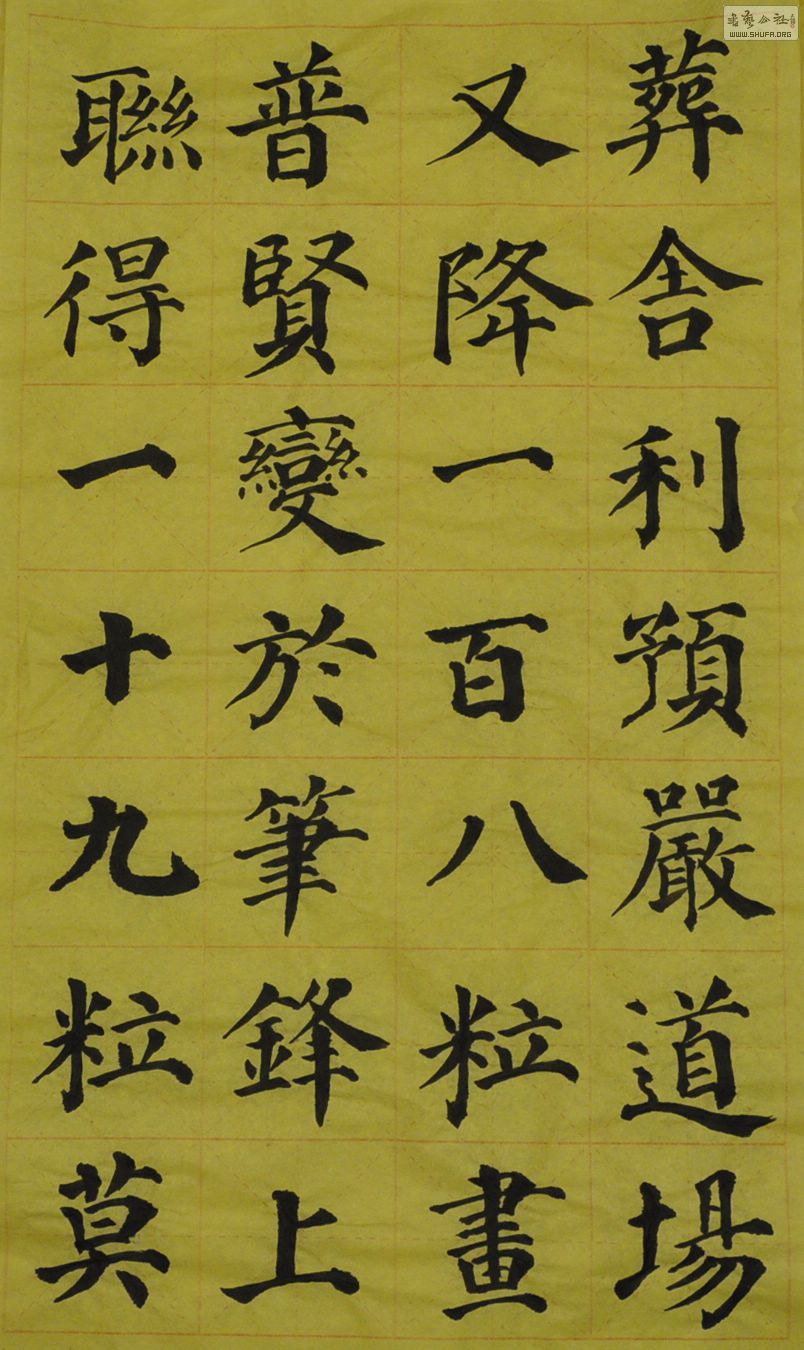 葬舍利預嚴道場
又降一百八粒畫
普賢變於筆鋒上
聯得一十九粒莫
WWW.SHUFA.ORG